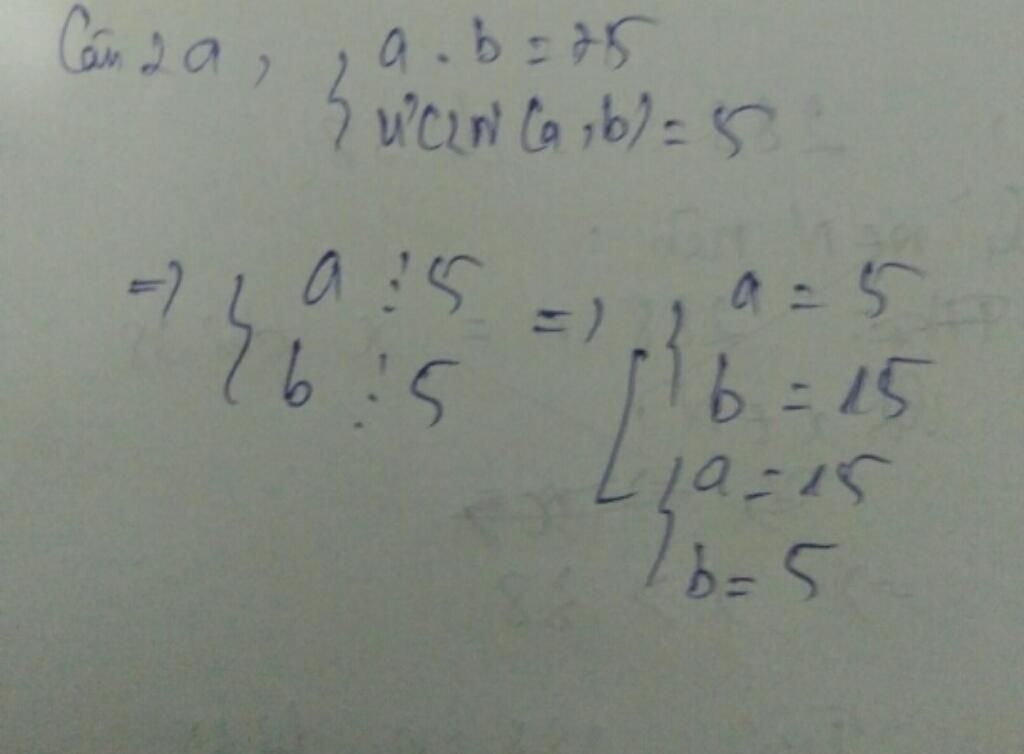 Câu 2 a, { a . b = 75
ƯCLN (a, b) = 5
=> { a ⋮ 5 => [ { a = 5
b ⋮ 5 b = 15
{ a = 15
b = 5